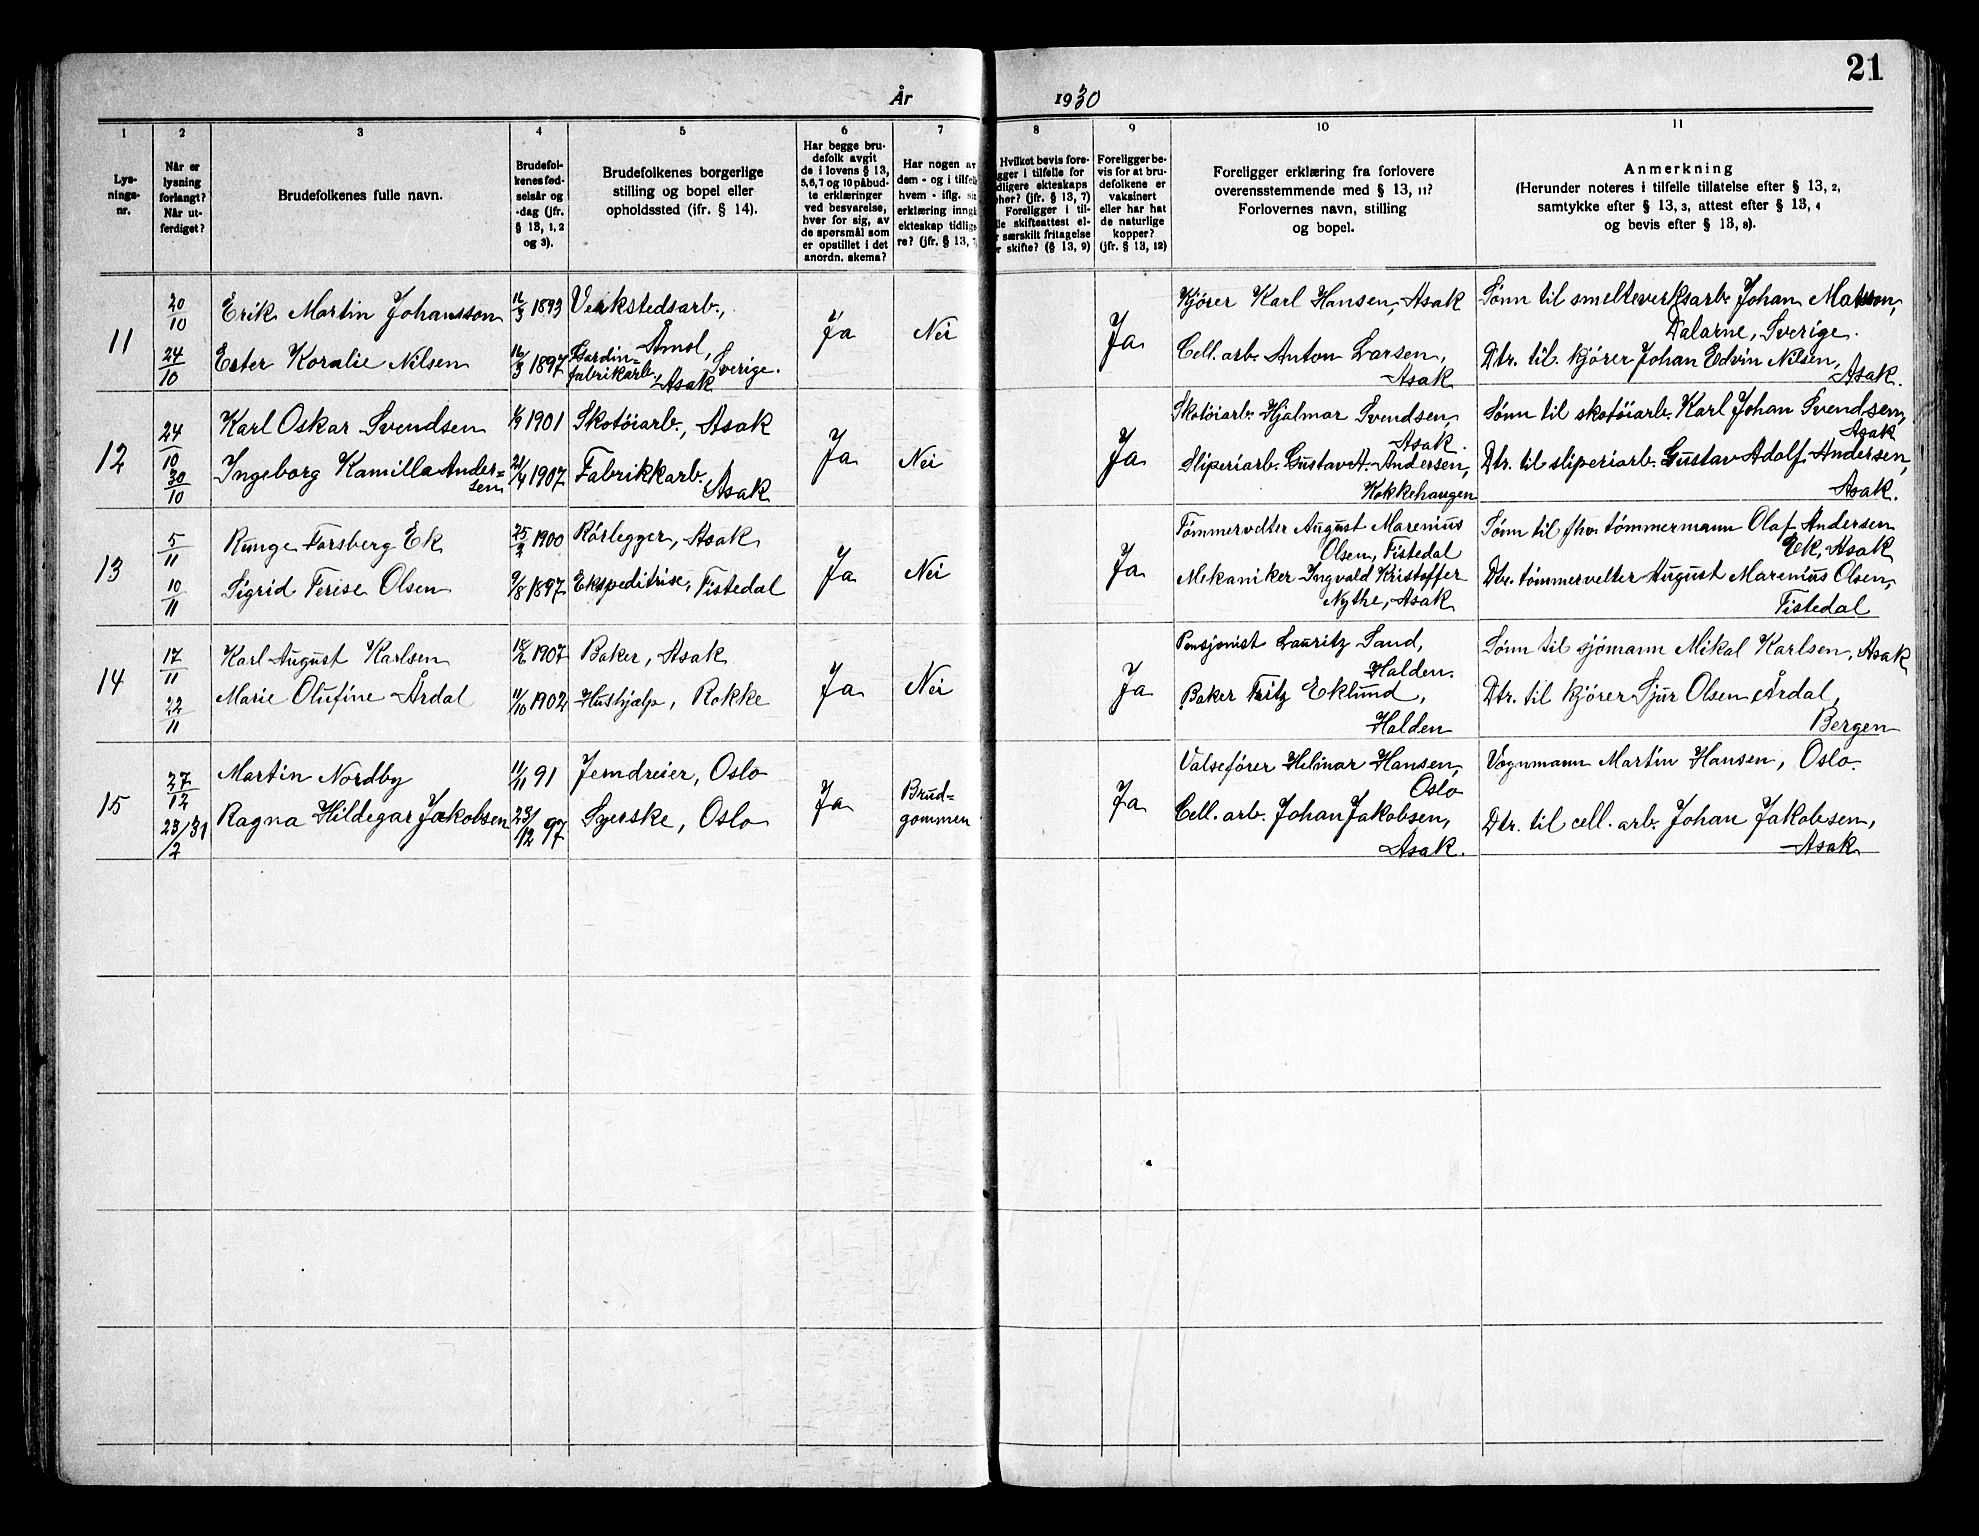 21
År 1930
1 2 3 4 5 6 7 8 9 10 11
Lys-
nings-
nr.
Når er
lysning
forlangt?
Når ut-
ferdiget?
Brudefolkenes fulle navn.
Brudefol-
kenes fød-
selsår og
-dag (jfr.
§ 13, 1, 2
og 3).
Brudefolkenes borgerlige
stilling og bopel eller
opholdssted (jfr. § 14).
Har begge bru-
defolk avgit
de i lovens § 13,
5, 6, 7 og 10 påbud-
te erklæringer
ved besvarelse,
hver for sig, av
de spørsmål som
er opstillet i det
anordn. skema?
Har nogen av
dem - og i tilfelle
hvem - iflg. sin
erklæring inngåt
ekteskap tidlige-
re? (jfr. § 13, 7
Hvilket bevis fore-
gger i tilfelle for
dligere ekteskaps
pher? (jfr. § 13, 7)
Foreligger i til-
lle skifteattest el-
r særskilt fritagelse
r skifte? (§ 13, 9)
Foreligger be-
vis for at bru-
defolkene er
vaksinert
eller har hat
de naturlige
kopper?
(jfr. § 13, 12)
Foreligger erklæring fra forlovere
overensstemmende med § 13, 11?
Forlovernes navn, stilling
og bopel.
Anmerkning
(Herunder noteres i tilfelle tillatelse efter § 13, 2,
samtykke efter § 13, 3, attest efter § 13, 4
og bevis efter § 13, 8).
11
20/10
24/10
Erik Martin Johansson
Ester Koralie Nilsen
12/3 1893
16/3 1897
Verkstedsarb.,
Åmol,
Sverige.
Gardin-
fabrikarb.,
Asak
Ja
Nei
Ja
Kjører Karl Hansen, Asak
Cell. arb. Anton Larsen,
Asak
Sønn til smelteverksarb. Johan Matsson,
Dalarne, Sverige.
Dtr. til kjører Johan Edvin Nilsen,
Asak.
12
24/10
30/10
Karl Oskar Svendsen
Ingeborg Kamilla Ander-
sen
1901
21/4 1907
Skotøiarb., Asak
Fabrikkarb.,
Asak
Ja
Nei
Ja
Skotøiarb. Hjalmar Svendsen,
Asak.
Sliperiarb. Gustav A. Andersen,
Kokkehaugen
Sønn til skotøiarb. Karl Johan Svendsen,
Asak
Dtr. til sliperiarb. Gustav Adolf Andersen,
Asak.
13
5/11
10/11
Runge Forsberg Ek
Sigrid Terese Olsen
1900
9/8 1897
Rørlegger, Asak
Ekspeditrise, Tistedal
Ja
Nei
Ja
Tømmervelter August Marenius
Olsen, Tistedal
Mekaniker Ingvald Kristoffer
Nythe, Asak
Sønn til fhv. tømmermann Olaf Andersen
Ek, Asak
Dtr. tømmervelter August Marenius Olsen,
Tistedal
14
17/11
22/11
Karl August Karlsen
Marie Olufine Årdal
1907
11/10 1902
Baker, Asak
Hushjælp, Rokke
Ja
Nei
Ja
Pensjonist Lauritz Sand,
Halden.
Baker Fritz Eklund,
Halden
Sønn til sjømann Mikal Karlsen, Asak
Dtr. til kjører Sjur Olsen Årdal,
Bergen
15
27/12
23/2 31
Martin Nordby
Ragna Hildegar Jakobsen
11/11 91
23/12 97
Jerndreier, Oslo
Syerske, Oslo
Ja
Brud-
gommen
Ja
Valsefører Helmar Hansen,
Oslo
Cell. arb. Johan Jakobsen,
Asak.
Vognmann Martin Hansen, Oslo.
Dtr. til cell. arb. Johan Jakobsen,
Asak